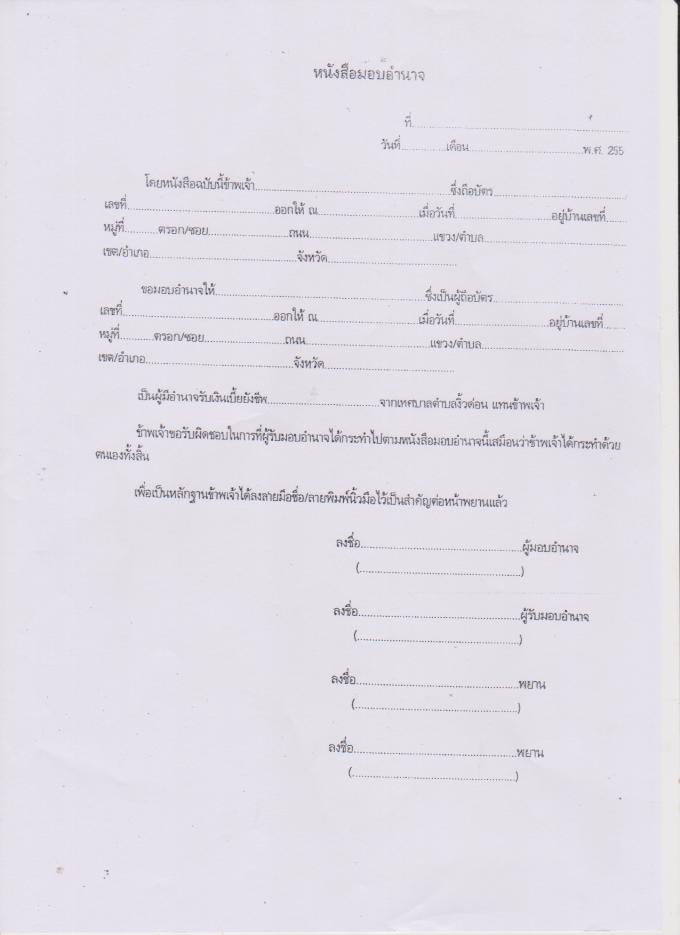 หนังสือมอบอำนาจ
ที่..............................................................
วันที่...............เดือน......................................พ.ศ. 255
โดยหนังสือฉบับนี้ข้าพเจ้า..................................................................ซึ่งถือบัตร............................................
เลขที่.................................................ออกให้ ณ.................................เมื่อวันที่................................อยู่บ้านเลขที่.......
หมู่ที่...........ตรอก/ซอย...........................ถนน.........................................แขวง/ตำบล...............................................
เขต/อำเภอ.................................................จังหวัด...........................................
ขอมอบอำนาจให้......................................................................ซึ่งเป็นผู้ถือบัตร............................................
เลขที่.................................................ออกให้ ณ.................................เมื่อวันที่................................อยู่บ้านเลขที่.......
หมู่ที่...........ตรอก/ซอย...........................ถนน.........................................แขวง/ตำบล...............................................
เขต/อำเภอ.................................................จังหวัด...........................................
เป็นผู้มีอำนาจรับเงินเบี้ยยังชีพ.....................................จากเทศบาลตำบลงิ้วด่อน แทนข้าพเจ้า
ข้าพเจ้าขอรับผิดชอบในการที่ผู้รับมอบอำนาจได้กระทำไปตามหนังสือมอบอำนาจนี้เสมือนว่าข้าพเจ้าได้กระทำด้วย
ตนเองทั้งสิ้น
เพื่อเป็นหลักฐานข้าพเจ้าได้ลงลายมือชื่อ/ลายพิมพ์นิ้วมือไว้เป็นสำคัญต่อหน้าพยานแล้ว
ลงชื่อ......................................................ผู้มอบอำนาจ
(......................................................)
ลงชื่อ......................................................ผู้รับมอบอำนาจ
(......................................................)
ลงชื่อ......................................................พยาน
(......................................................)
ลงชื่อ......................................................พยาน
(......................................................)